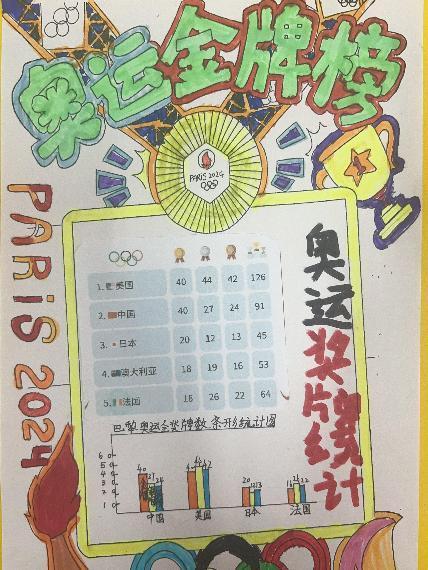 奥运金牌榜
PARIS 2024
PARIS 2024
奥运奖牌统计
1. 美国 40 44 42 126
2. 中国 40 27 24 91
3. 日本 20 12 13 45
4. 澳大利亚 18 19 16 53
5. 法国 16 26 22 64
巴黎奥运会奖牌数条形统计图
60
50
40
30
20
10
40 27 24
44 42
20 12 13
16 26 22
中国 美国 日本 法国